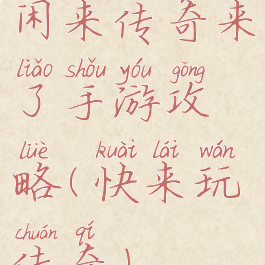 闲来传奇来
liǎo shǒu yóu gōng
了手游攻
lüè kuài lái wán
略(快来玩
chuán qí
传奇)